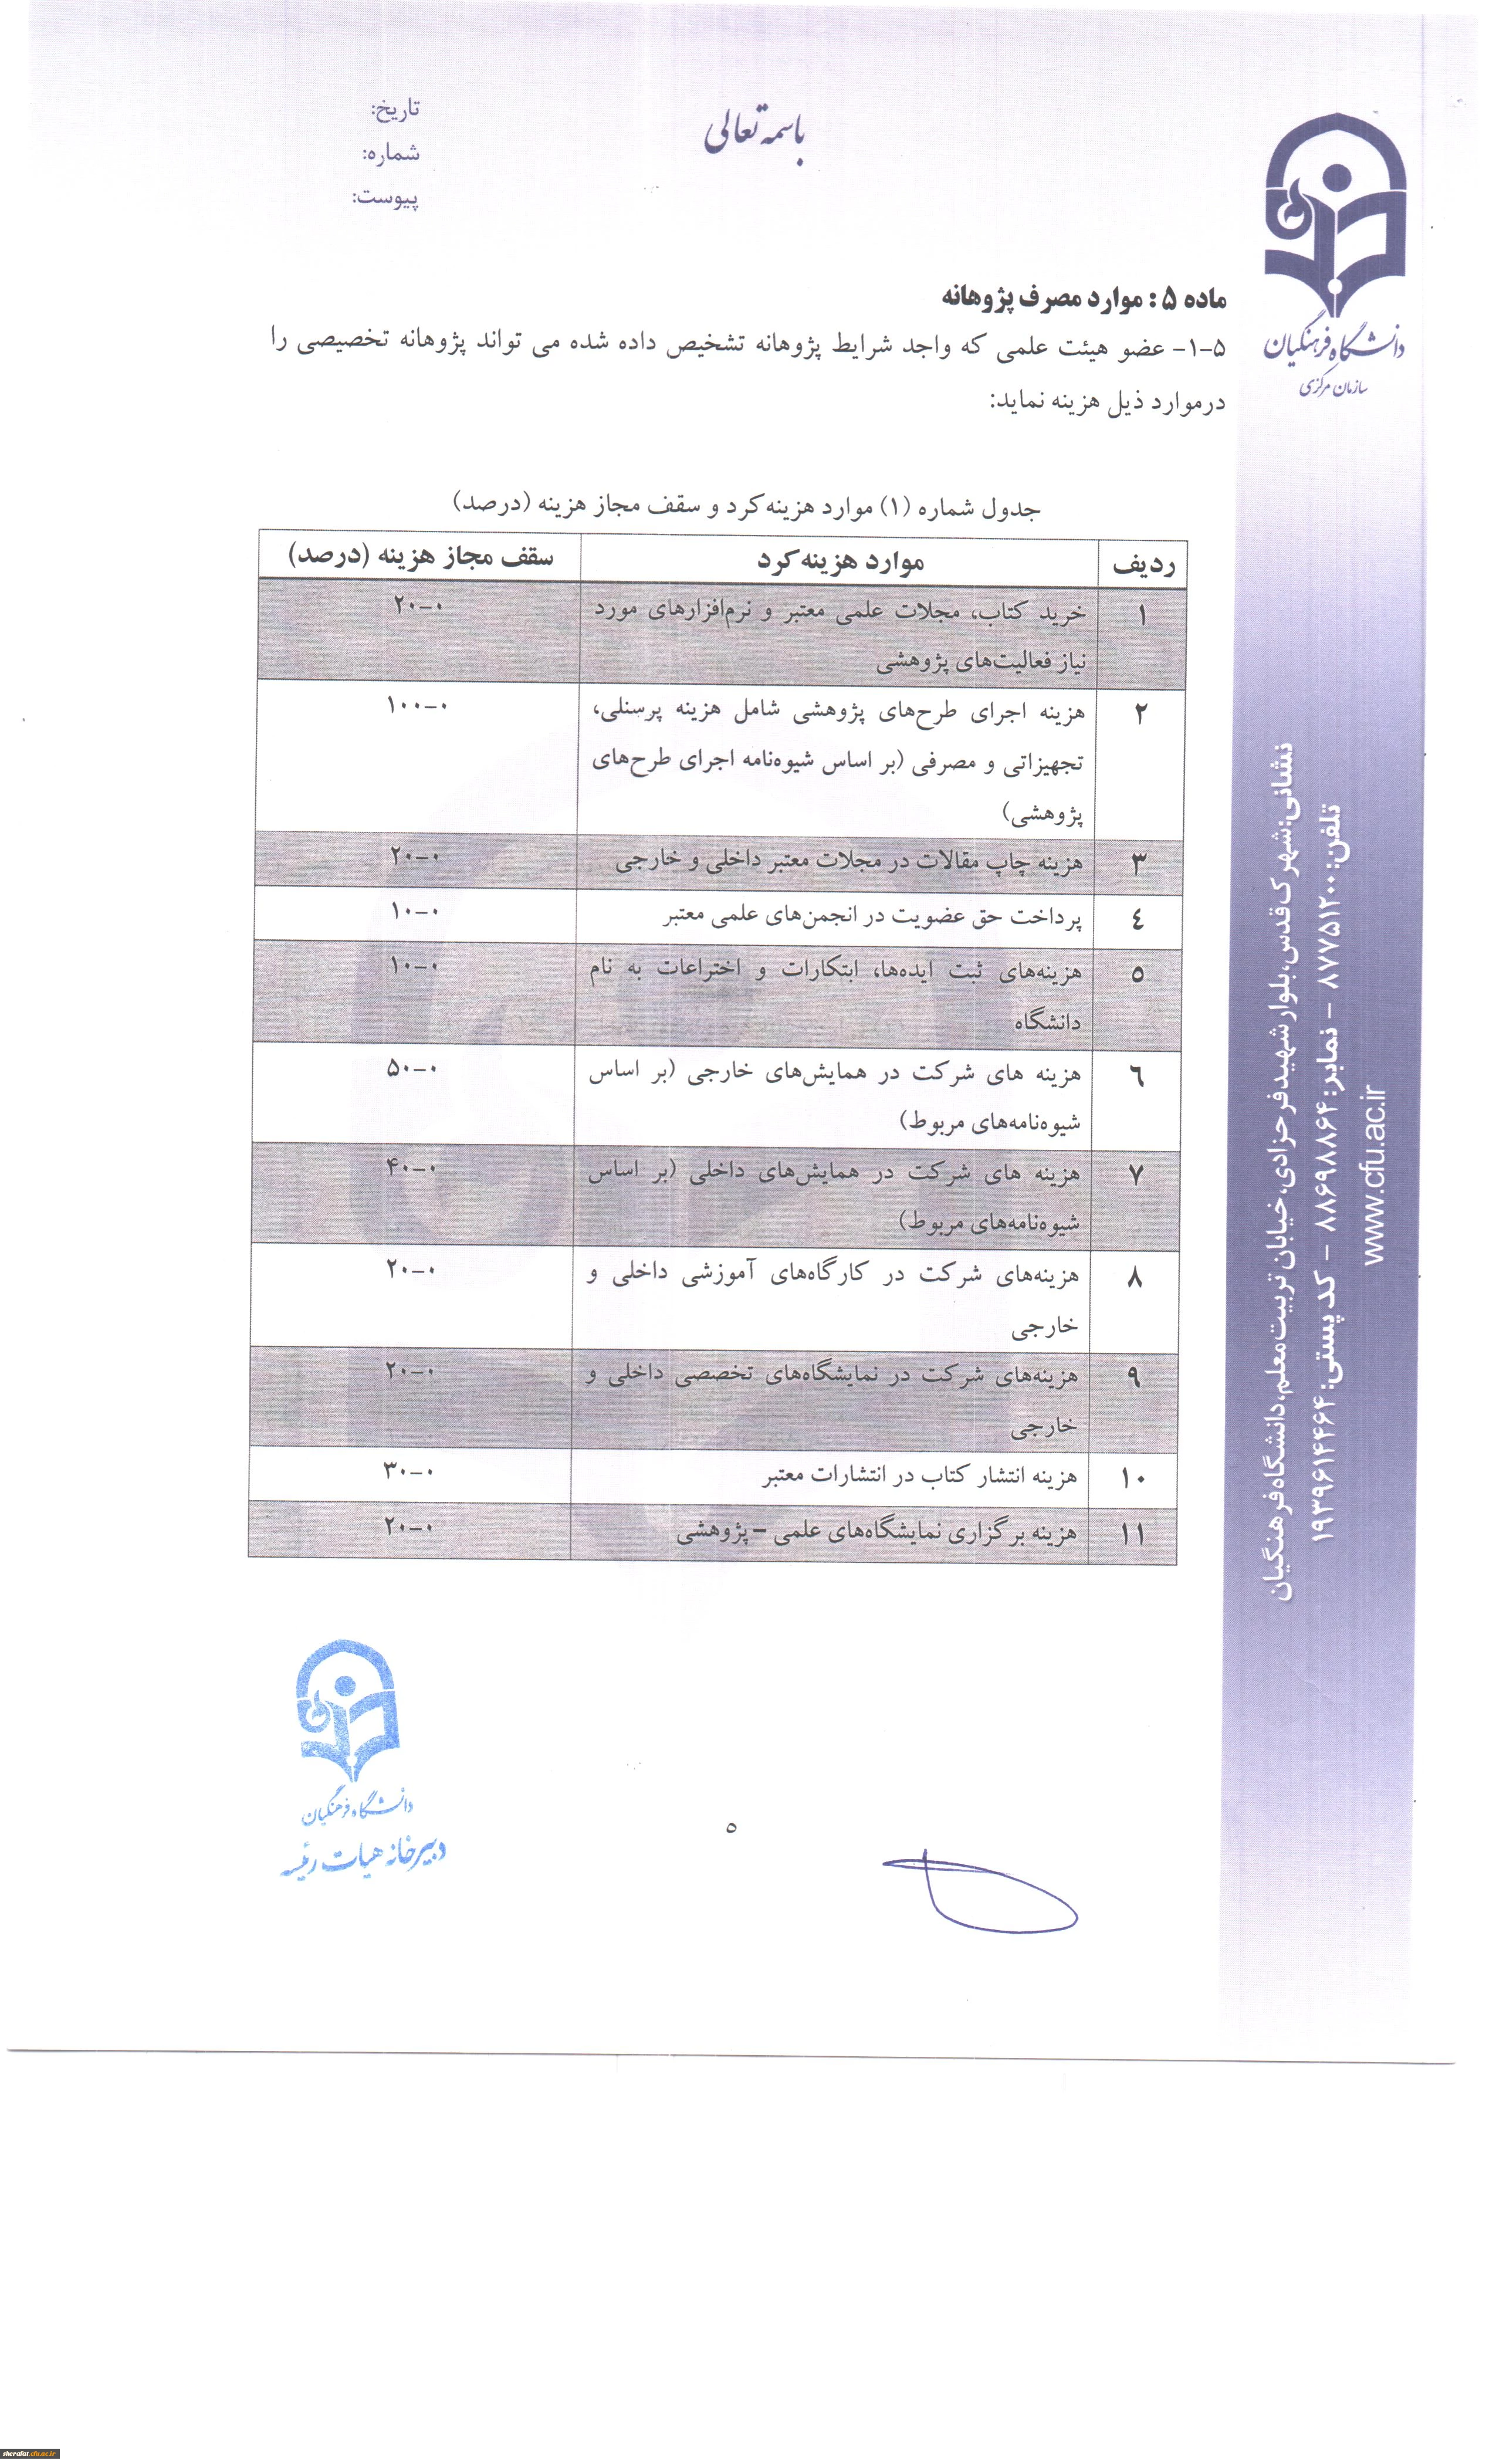 باسمه تعالی
تاریخ:
شماره:
پیوست:
دانشگاه فرهنگیان
سازمان مرکزی
ماده ۵ : موارد مصرف پژوهانه
۵-۱- عضو هیئت علمی که واجد شرایط پژوهانه تشخیص داده شده می تواند پژوهانه تخصیصی را
درموارد ذیل هزینه نماید:
جدول شماره (۱) موارد هزینه‌کرد و سقف مجاز هزینه (درصد)
ردیف موارد هزینه‌کرد سقف مجاز هزینه (درصد)
۱ خرید کتاب، مجلات علمی معتبر و نرم‌افزارهای مورد ۰-۲۰
نیاز فعالیت‌های پژوهشی
۲ هزینه اجرای طرح‌های پژوهشی شامل هزینه پرسنلی، ۰-۱۰۰
تجهیزاتی و مصرفی (بر اساس شیوه‌نامه اجرای طرح‌های
پژوهشی)
۳ هزینه چاپ مقالات در مجلات معتبر داخلی و خارجی ۰-۲۰
٤ پرداخت حق عضویت در انجمن‌های علمی معتبر ۰-۱۰
۵ هزینه‌های ثبت ایده‌ها، ابتکارات و اختراعات به نام ۰-۱۰
دانشگاه
٦ هزینه های شرکت در همایش‌های خارجی (بر اساس ۰-۵۰
شیوه‌نامه‌های مربوط)
۷ هزینه های شرکت در همایش‌های داخلی (بر اساس ۰-۴۰
شیوه‌نامه‌های مربوط)
۸ هزینه‌های شرکت در کارگاه‌های آموزشی داخلی و ۰-۲۰
خارجی
۹ هزینه‌های شرکت در نمایشگاه‌های تخصصی داخلی و ۰-۲۰
خارجی
۱۰ هزینه انتشار کتاب در انتشارات معتبر ۰-۳۰
۱۱ هزینه برگزاری نمایشگاه‌های علمی – پژوهشی ۰-۲۰
نشانی:شهرک قدس،بلوار شهید فرحزادی،خیابان تربیت معلم،دانشگاه فرهنگیان
تلفن: ۸۷۷۵۱۲۰۰ - نمابر: ۸۸۶۹۸۸۶۴ - کد پستی: ۱۹۳۹۶۱۴۴۶۴
www.cfu.ac.ir
دانشگاه فرهنگیان
دبیرخانه هیات رئیسه
۵
sherafat.cfu.ac.ir